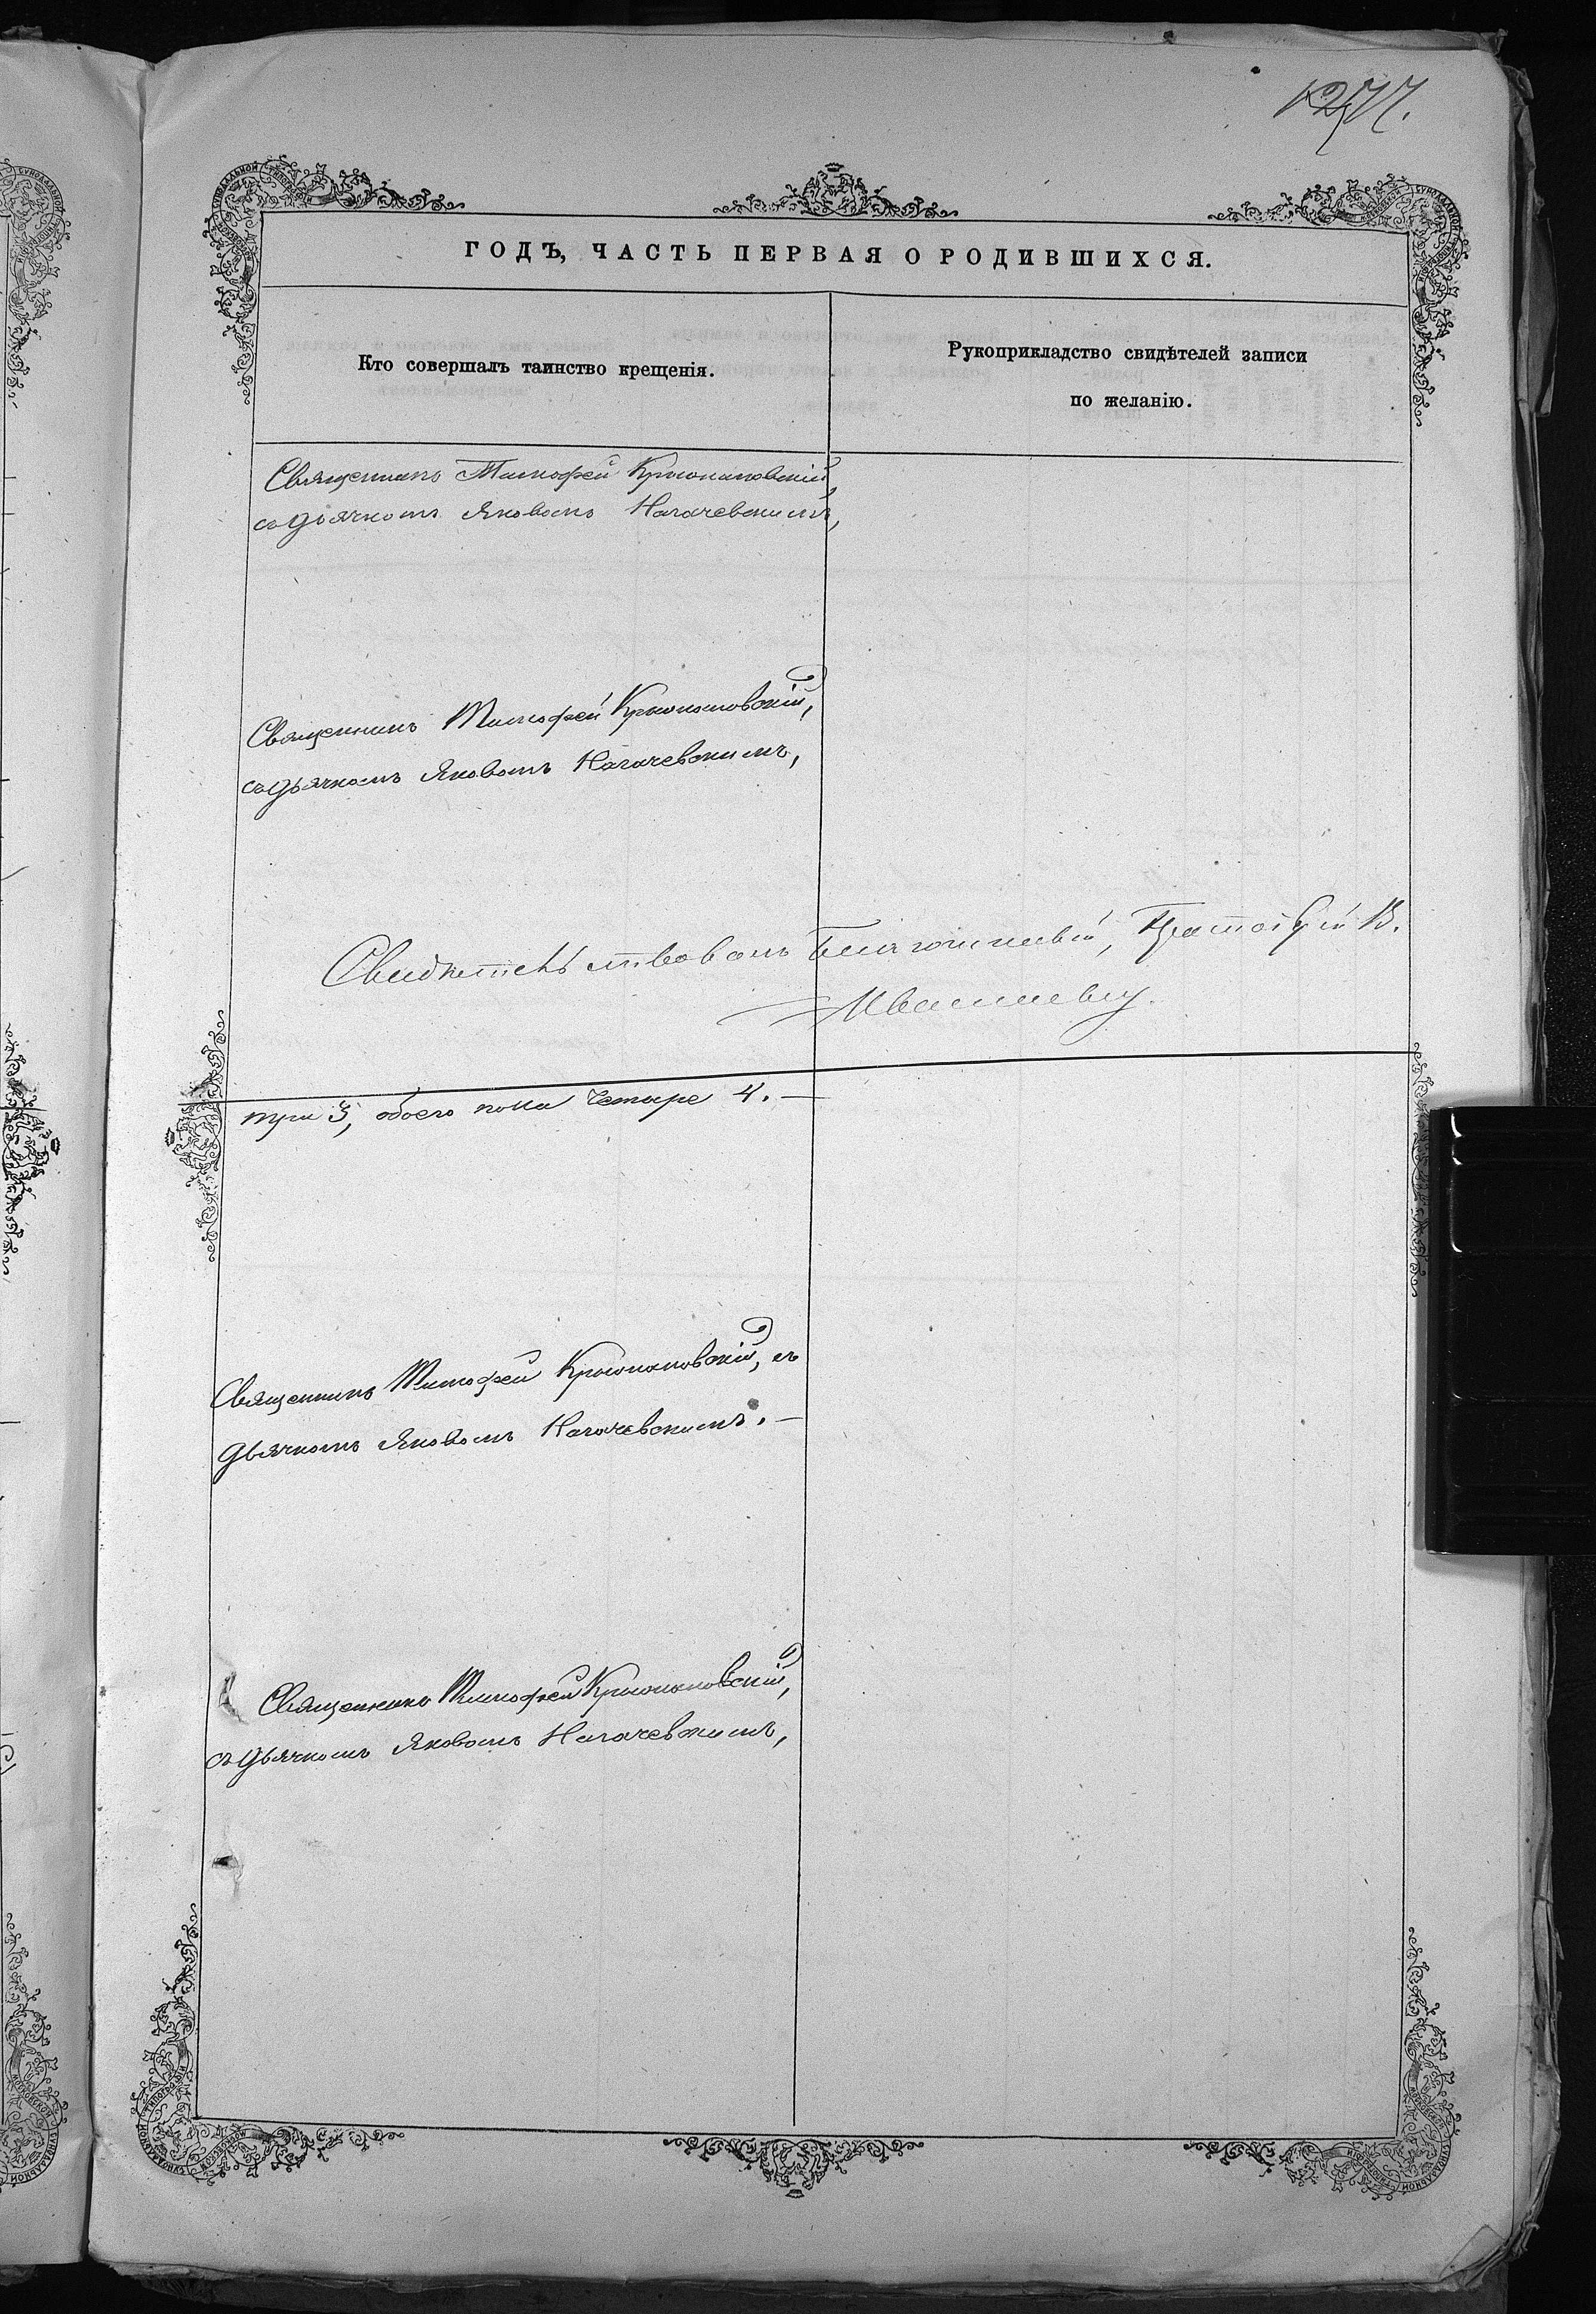 1277.
ГОДЪ, ЧАСТЬ ПЕРВАЯ О РОДИВШИХСЯ.
Кто совершалъ таинство крещенія.
Рукоприкладство свидѣтелей записи
по желанію.
Священникъ Тимофей
съ дьячкомъ Яковомъ Нагачевскимъ,
Священникъ Тимофей
съ дьячкомъ Яковомъ Нагачевскимъ,
Свидѣтельствовалъ Благочинный, В.
три 3, обоего пола четыре 4. —
Священникъ Тимофей съ
дьячкомъ Яковомъ Нагачевскимъ. —
Священникъ Тимофей
съ дьячкомъ Яковомъ Нагачевскимъ,